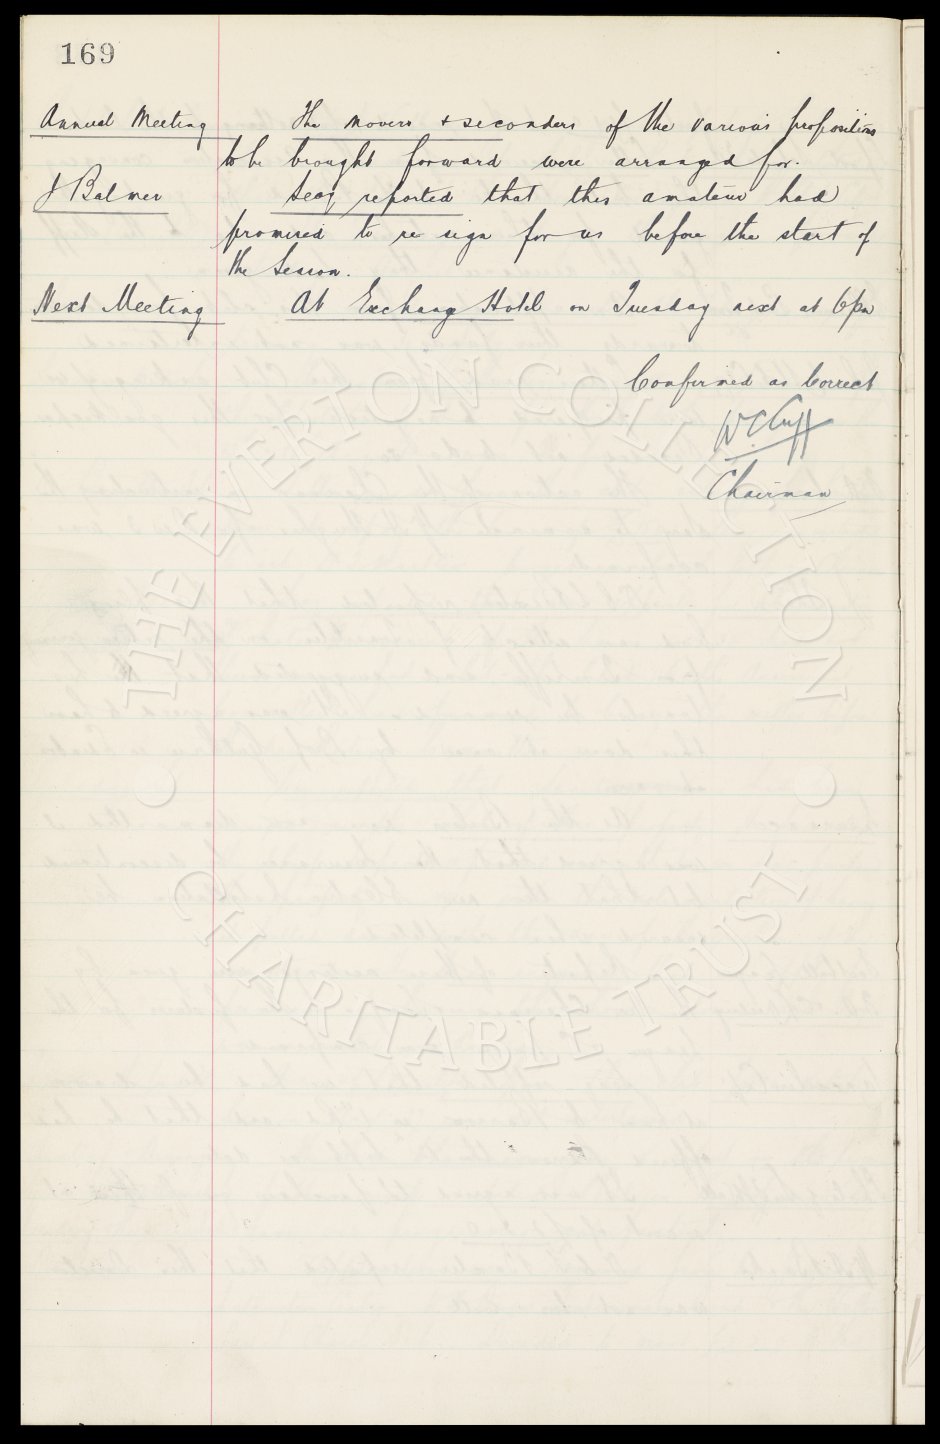 169
Annual Meeting The movers & seconders of the various propositions
to be brought forward were arranged for.
J Balmer Secy reported that this amateur had
promised to re sign for us before the start of
the Season.
Next Meeting At Exchange Hotel on Tuesday next at 6pm
Confirmed as Correct
WC Cuff
Chairman
THE EVERTON COLLECTION
CHARITABLE TRUST